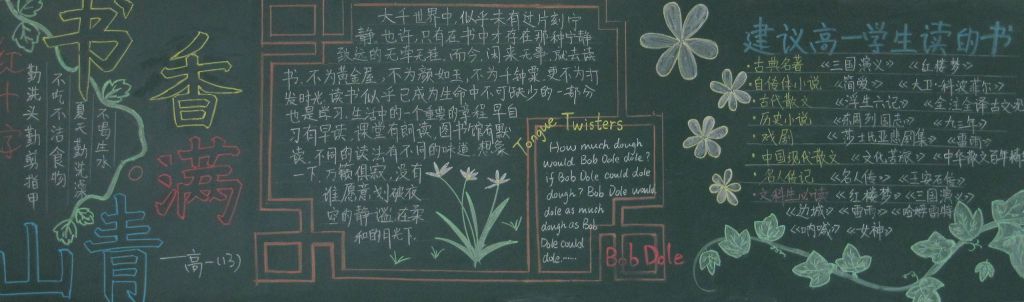 书香满
青山
高一(13)
红十字
勤洗头勤剪指甲
不吃不洁食物
夏天勤洗澡
不喝生水
大千世界中,似乎未有过片刻宁
静.也许,只有在书中才存在那种宁静
致远的无牵无挂.而今,闲来无事,就去读
书,不为黄金屋,不为颜如玉,不为千钟粟,更不为打
发时光.读书似乎已成为生命中不可缺少的一部分
也是学习、生活中的一个重要的章程.早自
习有早读,课堂有朗读,图书馆有默
读.不同的读法有不同的味道.想象
一下,万籁俱寂,没有
谁愿意划破夜
空的静谧,在柔
和的月光下.
Tongue Twisters
How much dough
would Bob Dole dole?
if Bob Dole could dole
dough? Bob Dole would
dole as much
dough as Bob
Dole could
dole,......
Bob Dole
建议高一学生读的书
·古典名著 《三国演义》 《红楼梦》
·自传体小说 《简爱》 《大卫·科波菲尔》
·古代散文 《浮生六记》 《全注全译古文观
·历史小说: 《东周列国志》 《九三年》
·戏剧 《莎士比亚悲剧集》 《雷雨》
·中国现代散文 《文化苦旅》 《中华散文百年精
·名人传记 《名人传》 《王安石传》
·文科生必读 《红楼梦》 《三国演义》
《边城》 《雷雨》 《哈姆雷特》
《呐喊》 《女神》